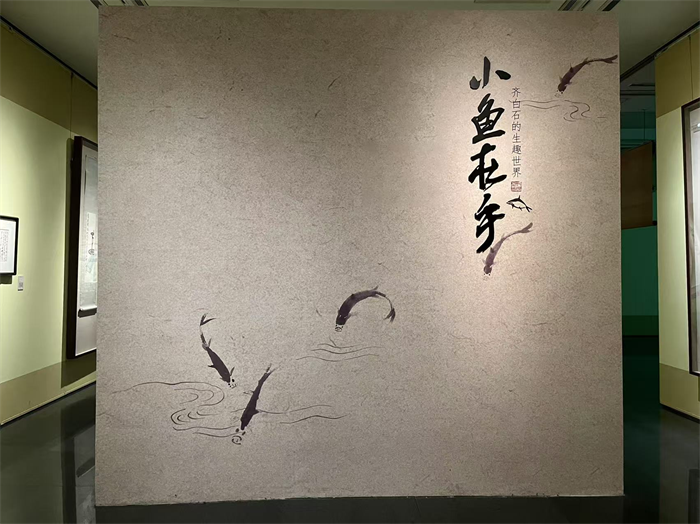 小鱼在手
齐白石的生趣世界